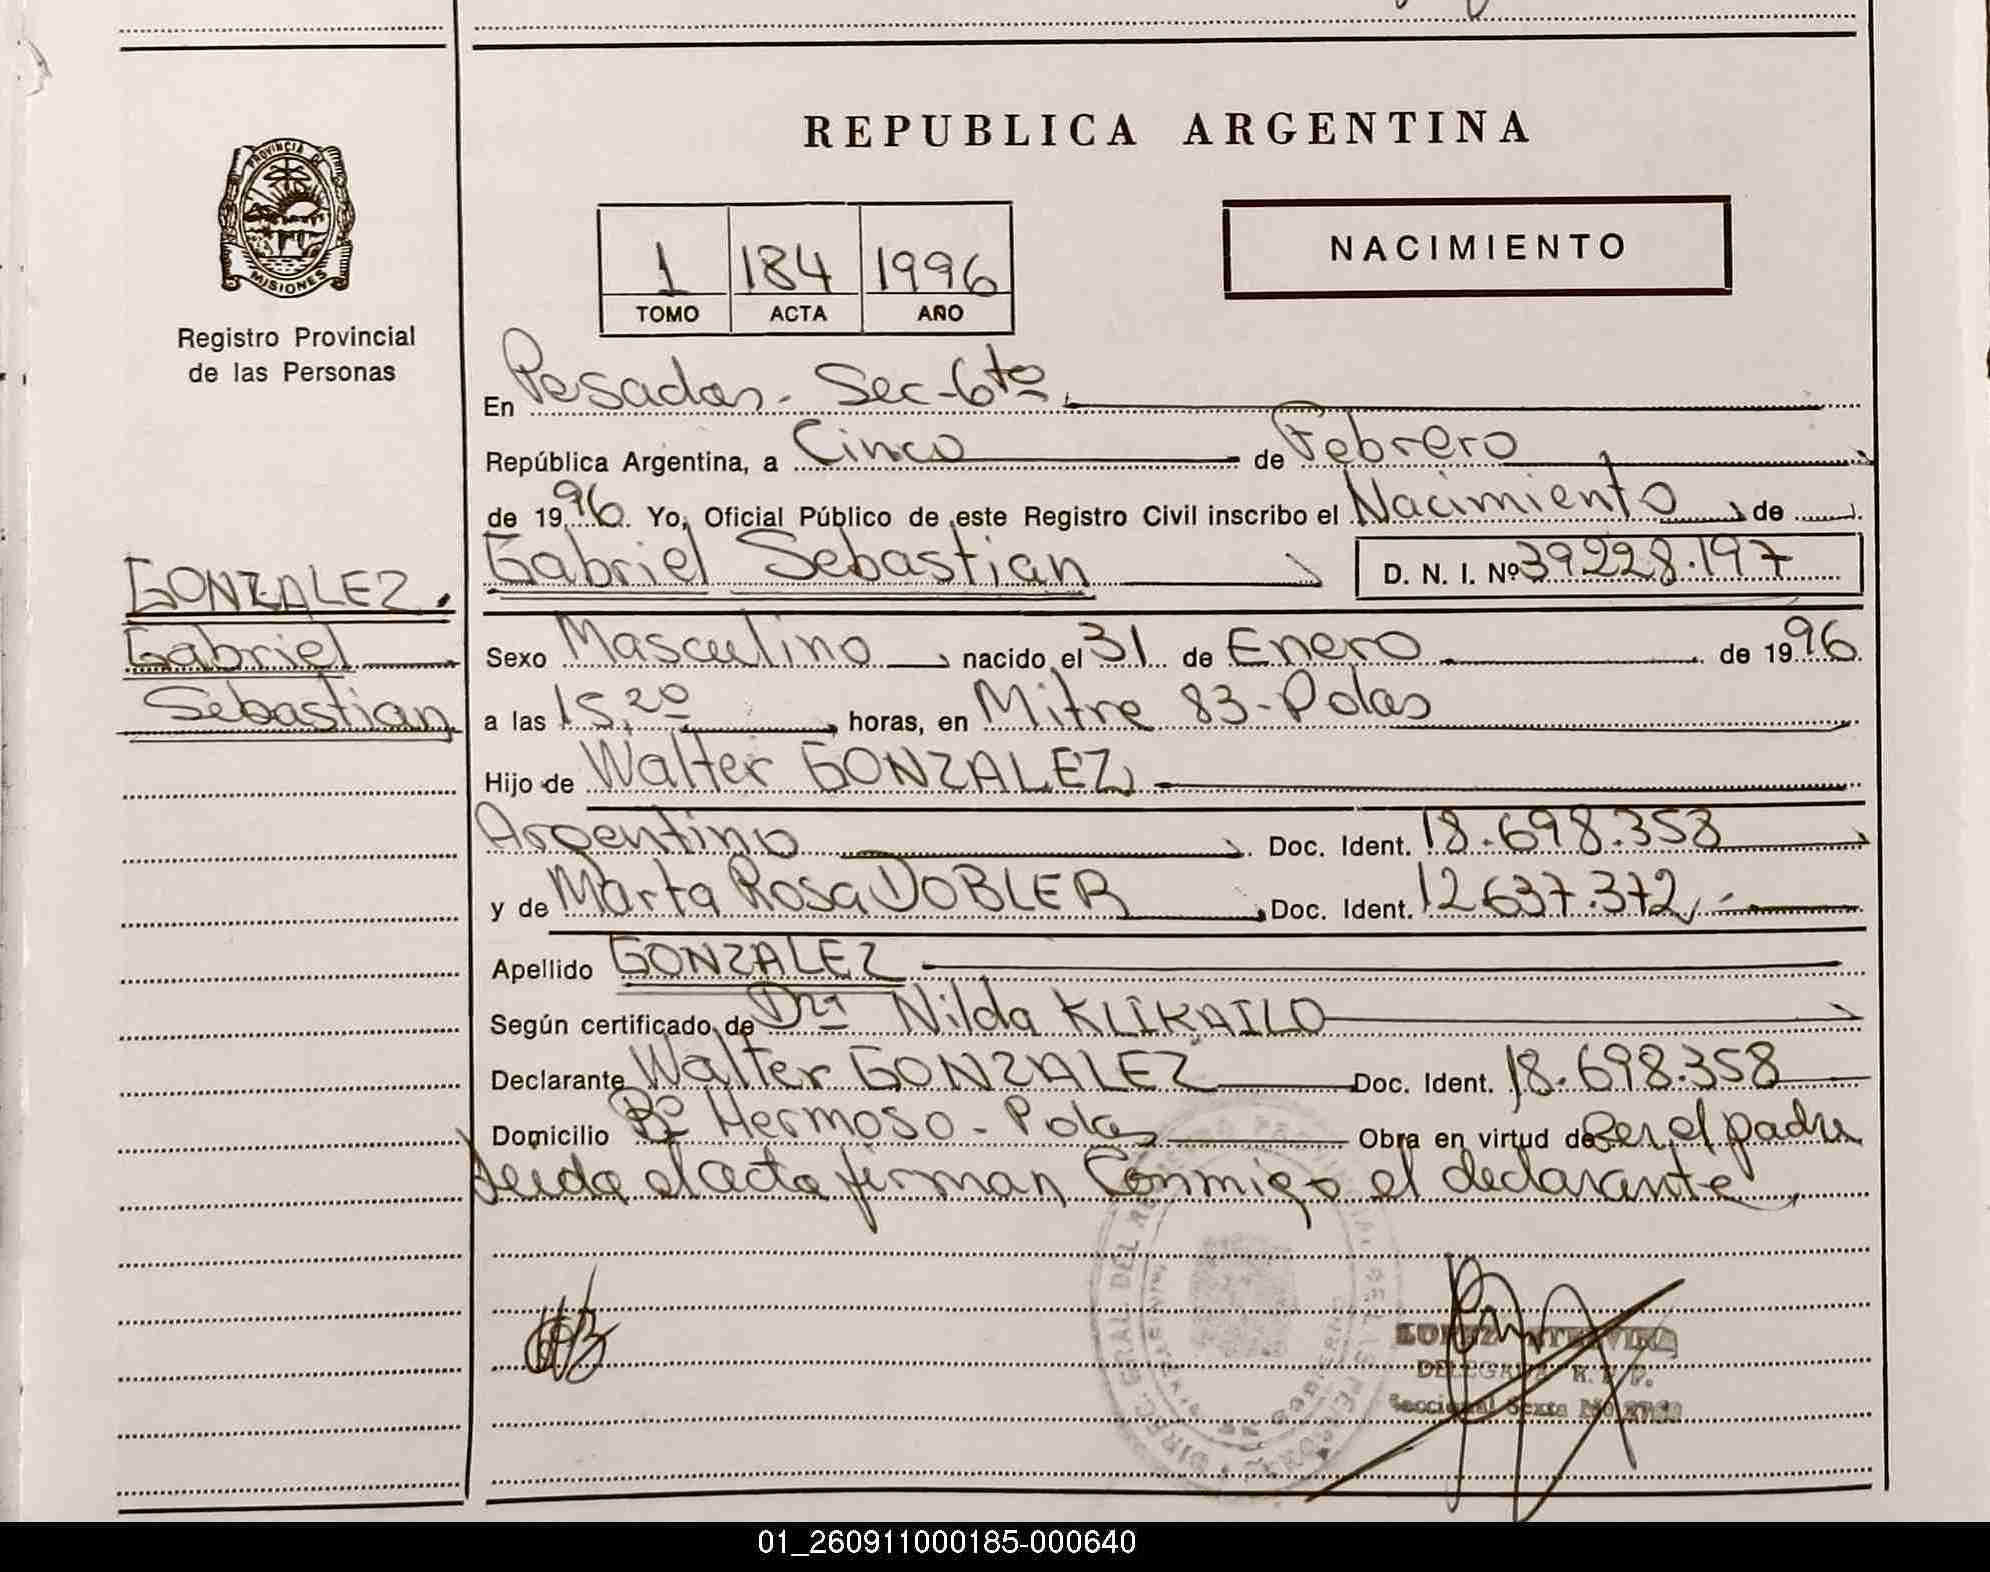 REPUBLICA ARGENTINA
PROVINCIA DE
MISIONES
Registro Provincial
de las Personas
1 184 1996
TOMO ACTA AÑO
NACIMIENTO
En Posadas - Sec-6ta
República Argentina, a Cinco de Febrero
de 1996. Yo, Oficial Público de este Registro Civil inscribo el Nacimiento de
Gabriel Sebastian D. N. I. Nº 39228.197
GONZALEZ.
Gabriel
Sebastian
Sexo Masculino nacido el 31 de Enero de 1996
a las 15,20 horas, en Mitre 83-Pdas
Hijo de Walter GONZALEZ,
Argentino Doc. Ident. 18.698.358
y de Marta Rosa DOBLER Doc. Ident. 12.637.372
Apellido GONZALEZ
Según certificado de Dra Nilda KLIKAILO
Declarante Walter GONZALEZ Doc. Ident. 18.698.358
Domicilio Bº Hermoso - Pdas Obra en virtud de Ser el padre
Leida el acta firman Conmigo el declarante
LOPEZ
DELEGADA R. P. P.
Seccional Sexta
01_260911000185-000640